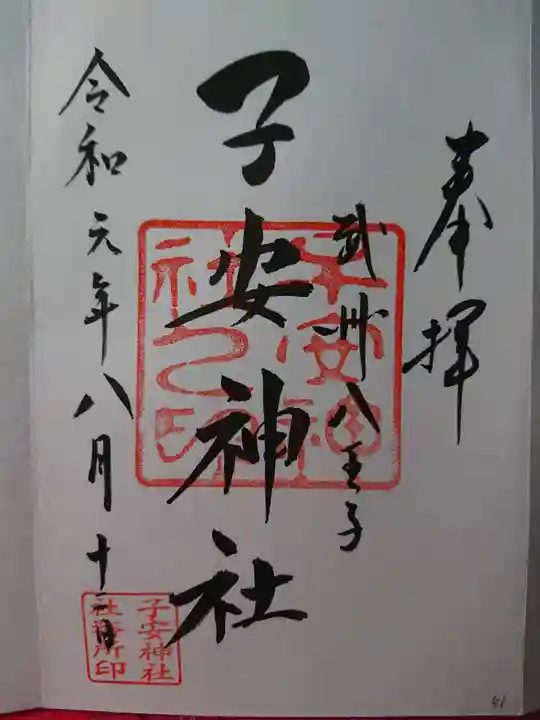 奉拝
武州八王子
子安神社
令和元年八月十二日
子安神社之印
子安神社
社務所印
41